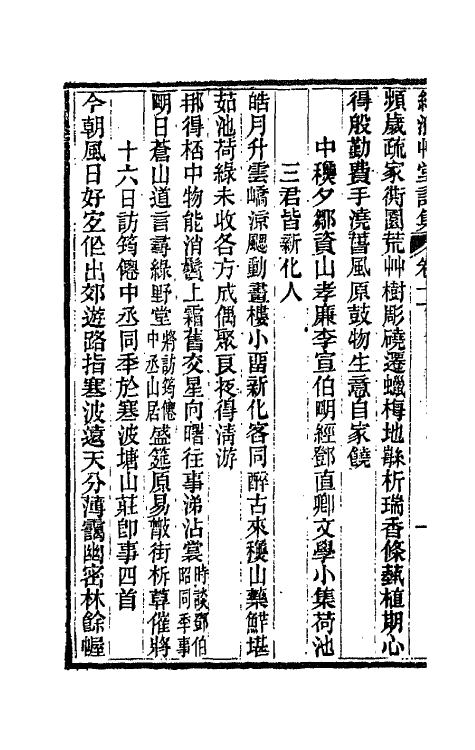 頻歲疏家衖園荒艸樹彫磽遷蠟梅地斸析瑞香條蓺植期心
得殷勤費手澆舊風原鼓物生意自家饒
中穐夕鄒資山孝廉李宣伯明經鄧直卿文學小集荷池
三君皆新化人
皓月升雲嶠涼飔動畫樓小畱新化客同醉古來穐山藥鮮堪
茹池荷綠未收各方成偶聚良夜得淸游
挪得桮中物能消鬢上霜舊交星向曙往事涕沾裳時談鄧伯昭同季事
明日蒼山道言尋綠野堂將訪筠僊中丞山居盛筵原易散街析莫催將
十六日訪筠僊中丞同季於寒波塘山莊卽事四首
今朝風日好㝎但出郊遊路指寒波遠天分薄靄幽密林餘幄